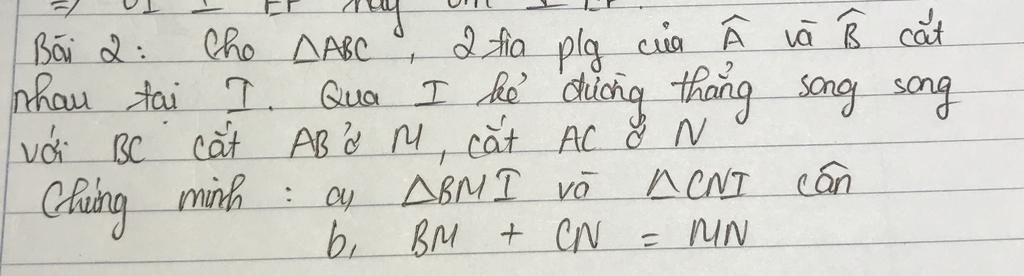 => OI ⊥ EF hay OM ⊥ EF.
Bài 2: Cho ΔABC, 2 tia plg của Â và B̂ cắt
nhau tại I. Qua I kẻ đường thẳng song song
với BC cắt AB ở M, cắt AC ở N
Chứng minh: a, ΔBMI và ΔCNI cân
b, BM + CN = MN